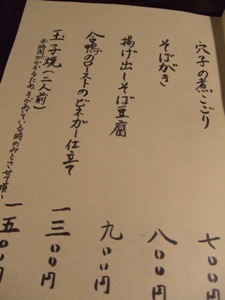 穴子の煮こごり 七〇〇円
そばがき 八〇〇円
揚げ出しそば豆腐 九〇〇円
合鴨のローストのビネガー仕立て 一三〇〇円
玉子焼(二人前) 一五〇〇円
お時間がかかるためすいている時のみとさせて頂